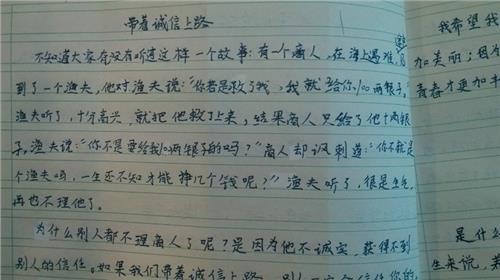 带着诚信上路
不知道大家有没有听过这样一个故事：有一个商人，在海上遇难，遇
到了一个渔夫，他对渔夫说：“你若是救了我，我就给你100两银子。”
渔夫听了，十分高兴，就把他救了上来，结果商人只给了他十两银
子。渔夫说：“你不是要给我100两银子的吗？”商人却讽刺道：“你不就是
个渔夫吗，一生还不知才能挣几个钱呢？”渔夫听了，很是生气，
再也不理他了。
为什么别人都不理商人了呢？是因为他不诚实，获得不到
别人的信任。如果我们带着诚信上路，别人
我希望我
加美丽；因为
青春才更加
是什么
生来说，